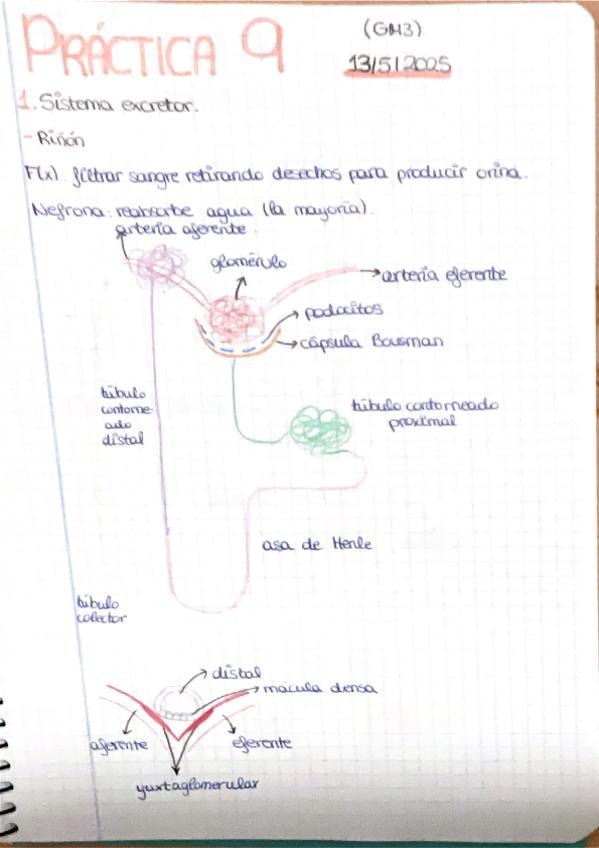 PRÁCTICA 9
(GM3)
13/5/2025
1. Sistema excretor.
- Riñón
F(x): filtrar sangre retirando desechos para producir orina.
Nefrona: reabsorbe agua (la mayoría).
arteria aferente
glomérulo
arteria eferente
podocitos
cápsula Bowman
túbulo
contorne-
ado
distal
túbulo contorneado
proximal
asa de Henle
túbulo
colector
distal
mácula densa
aferente
eferente
yuxtaglomerular